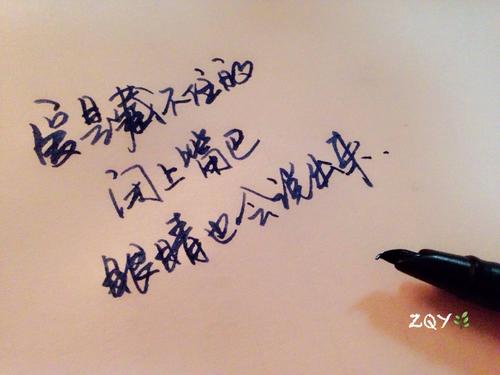 爱是藏不住的
闭上嘴巴
眼睛也会说出来..
ZQY